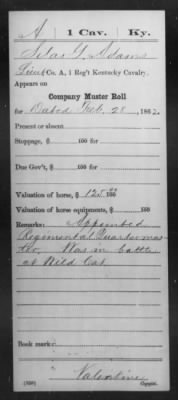 A 1 Cav. Ky.
Silas Y. Adams
Lieut Co. A, 1 Reg't Kentucky Cavalry.
Appears on
Company Muster Roll
for Dated Feb. 28, 1862.
Present or absent
Stoppage, $ 100 for
Due Gov't, $ 100 for
Valuation of horse, $ 125.00 100
Valuation of horse equipments, $ 100
Remarks: Appointed
Regimental Quartermas
ter. Was in battle
at Wild Cat.
Book mark:
Valentine
(358) Copyist.